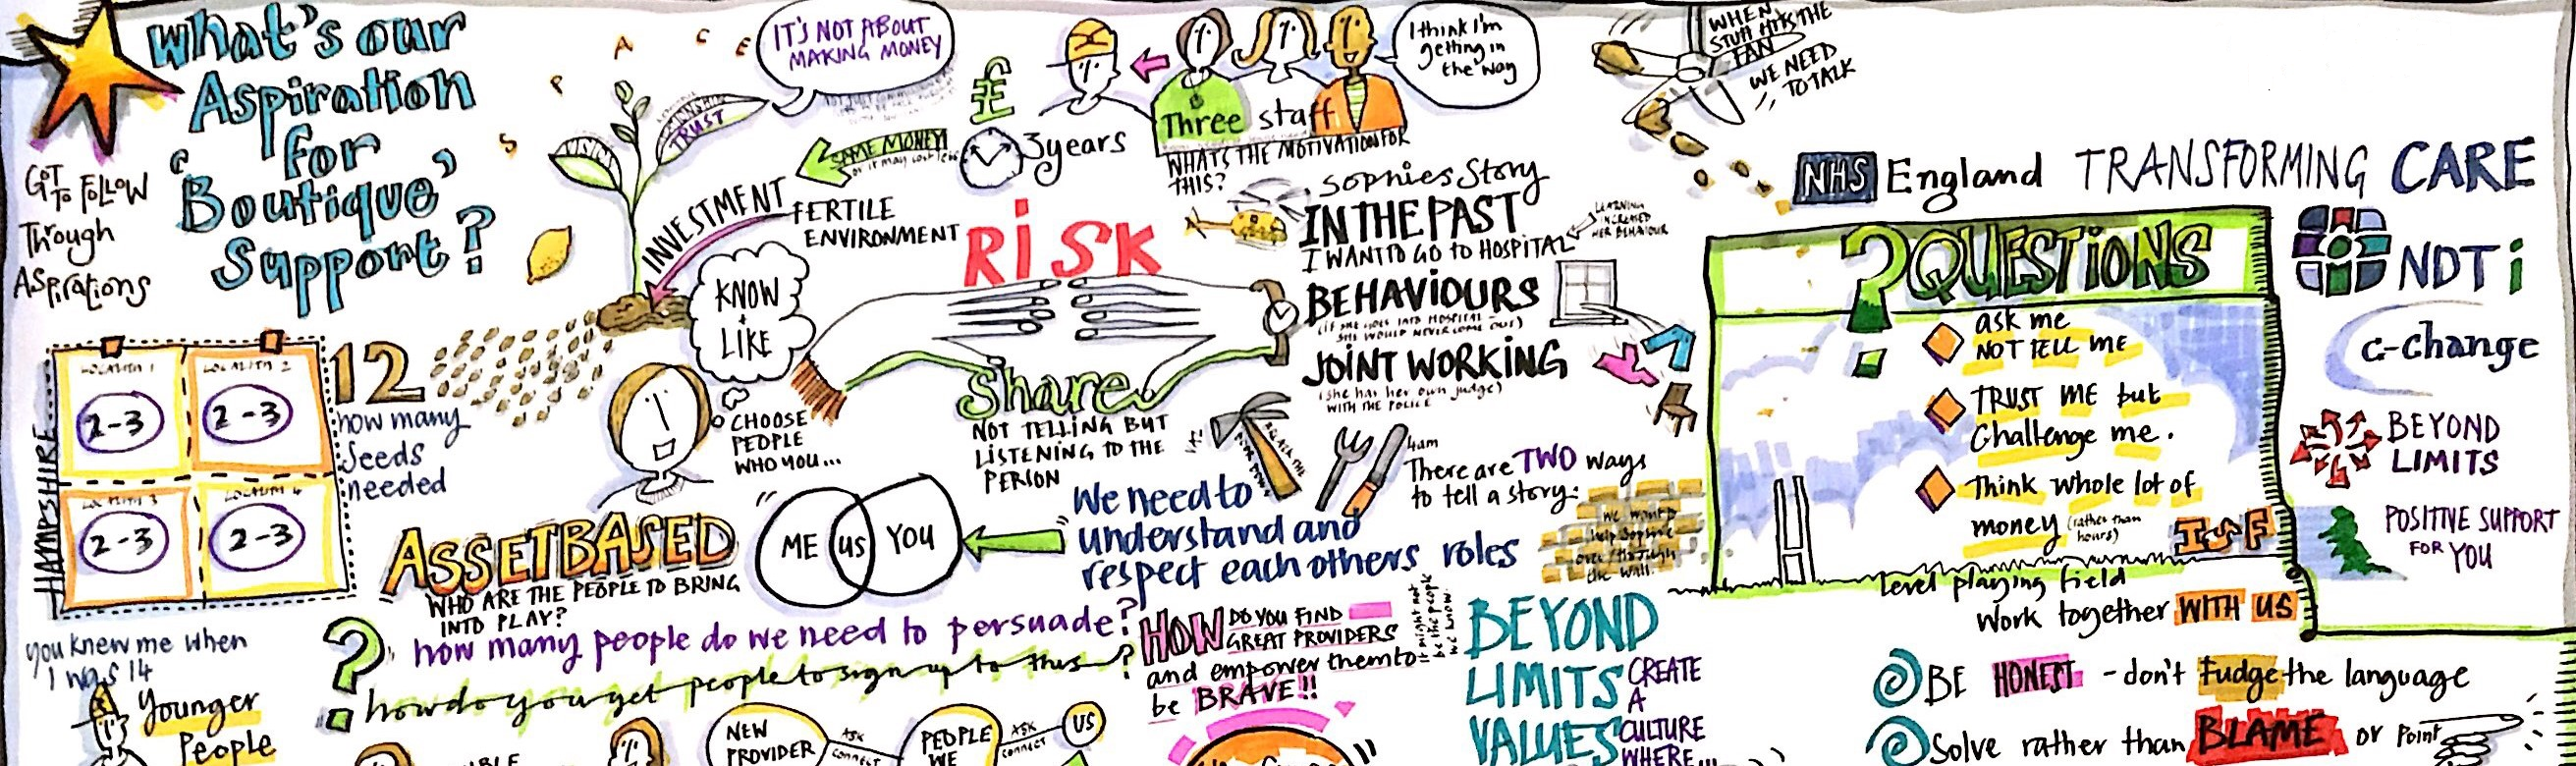 What's our
Aspiration
for
'Boutique'
Support?
GOT
TO FOLLOW
Through
Aspirations
SPACE
IT'S NOT ABOUT
MAKING MONEY
TRUST
SAME MONEY!
or it may cost less
£
3 years
Three staff
WHATS THE MOTIVATION FOR
THIS?
I think I'm
getting in
the way
WHEN
STUFF HITS THE
FAN
WE NEED
TO TALK
INVESTMENT
FERTILE
ENVIRONMENT
RISK
Share
NOT TELLING BUT
LISTENING TO THE
PERSON
KNOW
+
LIKE
CHOOSE
PEOPLE
WHO YOU...
Sophies Story
IN THE PAST
I WANT TO GO TO HOSPITAL
LEARNING
INCREASED
HER BEHAVIOUR
BEHAVIOURS
(IF SHE GOES INTO HOSPITAL -
SHE WOULD NEVER COME OUT)
JOINT WORKING
(she has her own judge)
WITH THE POLICE
4am
There are TWO ways
to tell a story:
we want to
help Sophie
over/through
the wall.
HAMPSHIRE
LOCALITY 1
2-3
LOCALITY 2
2-3
LOCALITY 3
2-3
LOCALITY 4
2-3
12
how many
Seeds
needed
ASSET BASED
WHO ARE THE PEOPLE TO BRING
INTO PLAY?
ME
US
YOU
We need to
understand and
respect each others roles
how many people do we need to persuade?
how do you get people to sign up to this?
HOW DO YOU FIND
GREAT PROVIDERS
and empower them to
be BRAVE!!
might not
be the people
we know.
BEYOND
LIMITS
VALUES
CREATE
A
CULTURE
WHERE...
you knew me when
I was 14
Younger
People
NEW
PROVIDER
ASK
CONNECT
PEOPLE
WE
ASK
CONNECT
US
NHS England TRANSFORMING CARE
NDTi
c-change
BEYOND
LIMITS
POSITIVE SUPPORT
FOR YOU
? QUESTIONS
ask me
NOT TELL ME
TRUST ME but
Challenge me.
Think whole lot of
money (rather than
hours)
ISF
Level playing field
Work together WITH US
BE HONEST - don't fudge the language
Solve rather than BLAME or Point